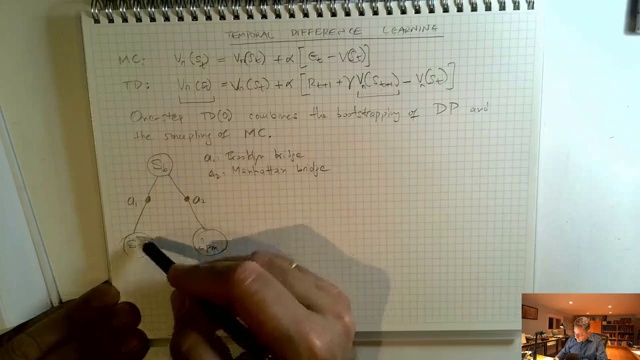 TEMPORAL DIFFERENCE LEARNING
MC: Vπ(St) = Vπ(St) + α [Gt − V(St)]
TD: Vπ(St) = Vπ(St) + α [Rt+1 + γVπ(St+1) − Vπ(St)]
One-step TD(0) combines the bootstrapping of DP and
the sampling of MC.
a1: Brooklyn bridge
a2: Manhattan bridge
a1
a2